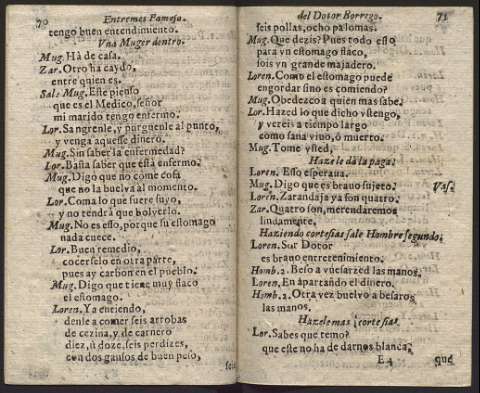 70 Entremes Famoso.
tengo buen entendimiento.
Vna Muger dentro.
Mug. Hà de casa.
Zar. Otro ha caydo,
entre quien es.
Sale Mug. Este pienso
que es el Medico, señor
mi marido tengo enfermo.
Lor. Sangrenle, y purguenle al punto,
y venga aquesse dinero.
Mug. Sin saber la enfermedad?
Lor. Basta saber que està enfermo.
Mug. Digo que no come cosa
que no la buelva al momento.
Lor. Coma lo que fuere suyo,
y no tendrà que bolverlo.
Mug. No es esso, porque su estomago
nada cuece.
Lor. Buen remedio,
cocerselo en otra parte,
pues ay carbon en el pueblo.
Mug. Digo que tiene muy flaco
el estomago.
Loren. Ya entiendo,
denle a comer seis arrobas
de cezina, y de carnero
diez, ù doze, seis perdizes,
con dos gansos de buen peso,
seis
del Dotor Borrego. 71
seis pollas, ocho palomas.
Mug. Que dezis? Pues todo esto
para vn estomago flaco,
sois vn grande majadero.
Loren. Como el estomago puede
engordar sino es comiendo?
Mug. Obedezco a quien mas sabe.
Lor. Hazed lo que dicho vstengo,
y vereis a tiempo largo
como sana vivo, ò muerto.
Mug. Tome vsted,
Hazele dà la paga.
Loren. Esso esperaua.
Mug. Digo que es brauo sujeto. Vase
Loren. Zarandaja ya son quatro.
Zar. Quatro son, merendaremos
lindamente.
Haziendo cortesias sale Hombre segundo.
Loren. Sor Dotor
es brauo entretenimiento.
Homb. 2. Beso a vuesarzed las manos,
Loren. En apartando el dinero.
Homb. 2. Otra vez buelvo a besaros
las manos.
Hazele mas cortesias.
Lor. Sabes que temo?
que este no ha de darnos blanca,
E 4 que